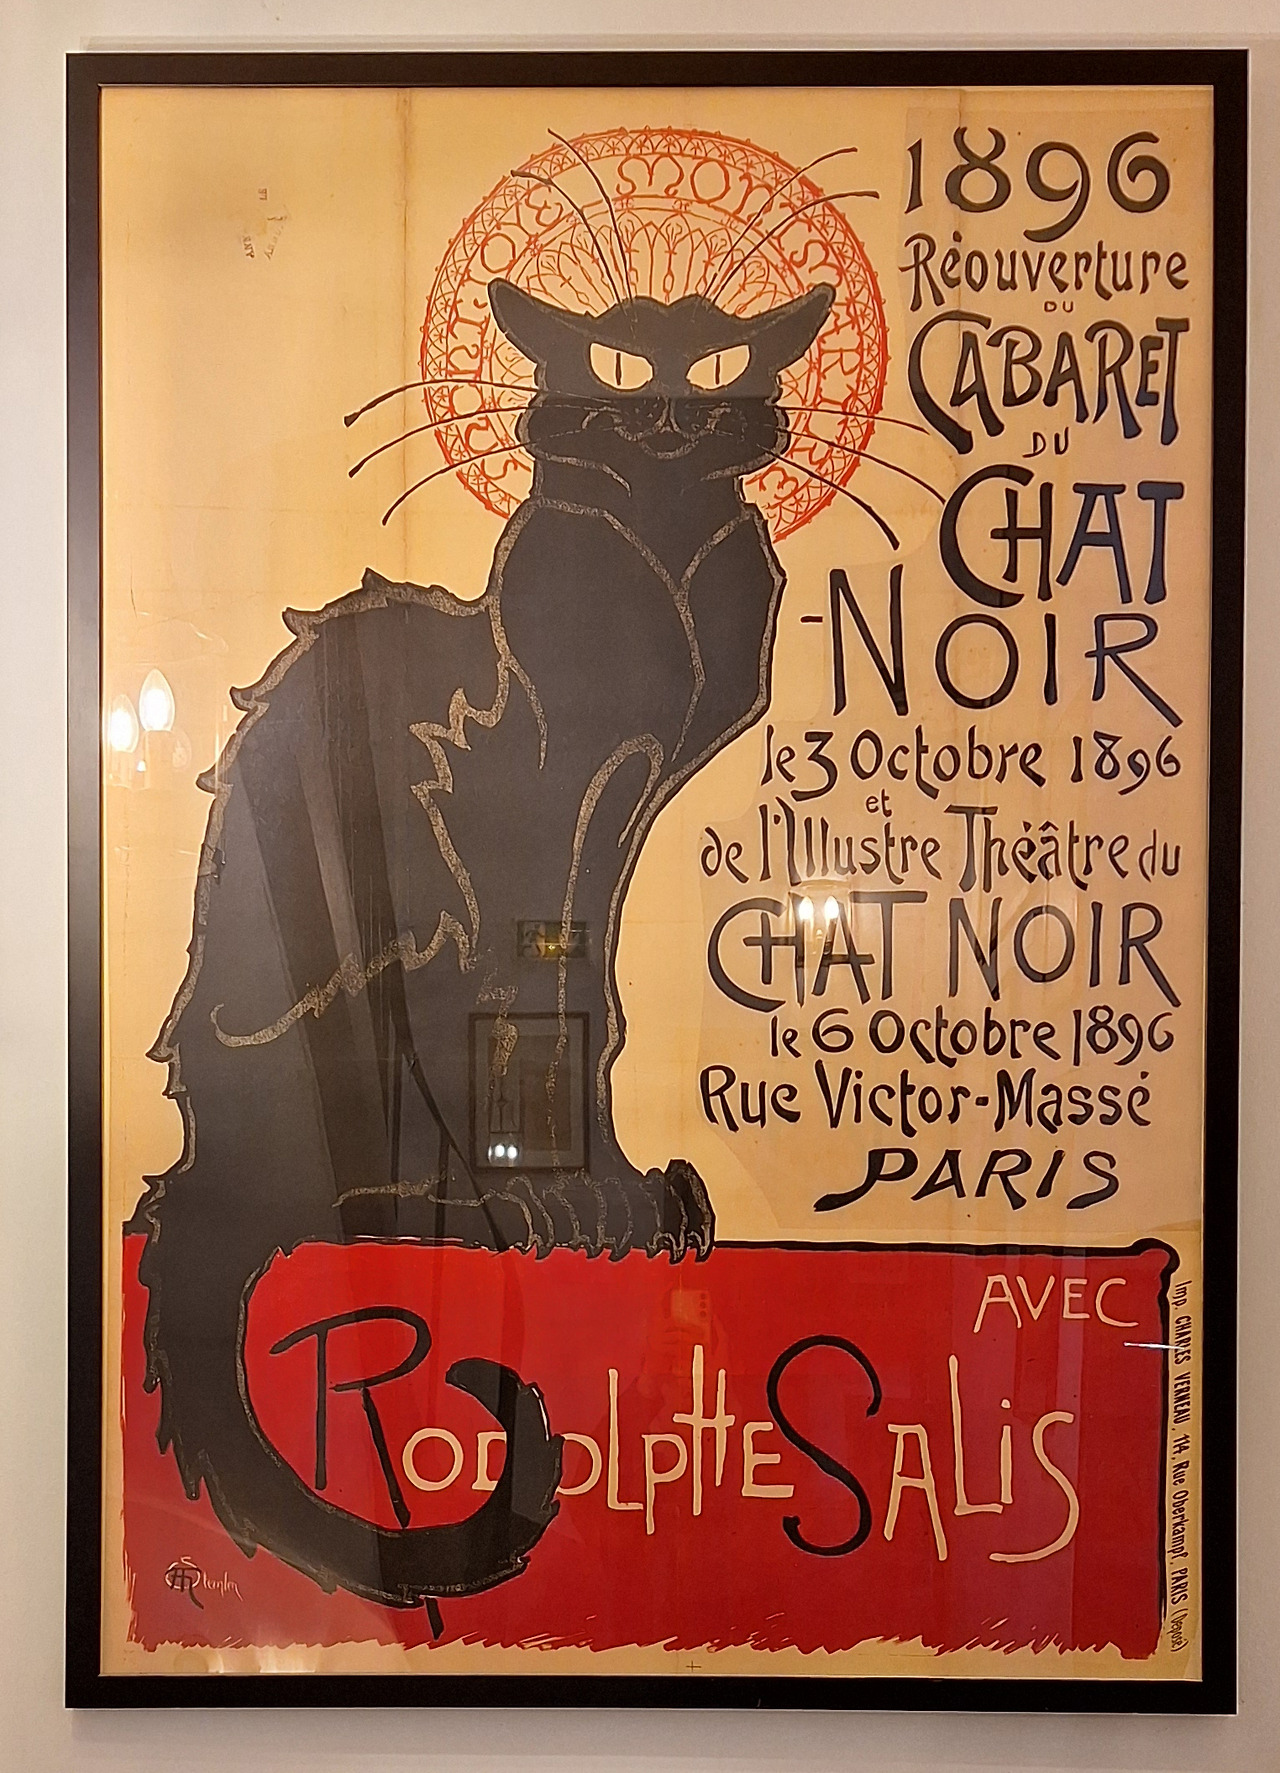 1896
Réouverture
DU
CABARET
DU
CHAT
-NOIR
le 3 Octobre 1896
et
de l'Illustre Théâtre du
CHAT NOIR
le 6 Octobre 1896
Rue Victor-Massé
PARIS
AVEC
RODOLPHE SALIS
MONTMARTRE
Steinlen
Imp. CHARLES VERNEAU, 114, Rue Oberkampf, PARIS (Déposé)